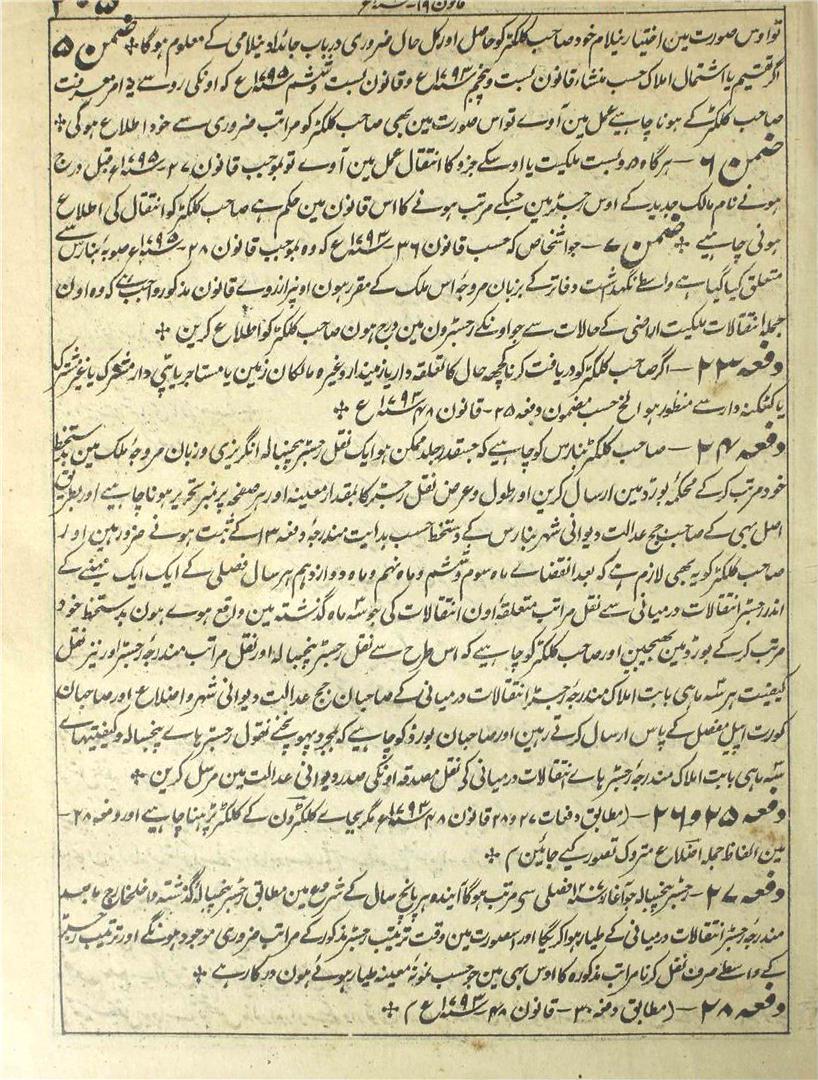 قانون ۱۹ - سنہ ۱۷۹۵ع
تو اوس صورت مین اختیار نیلام خود صاحب کلکٹر کو حاصل اور کل حال ضروری درباب جائداد نیلامی کے معلوم ہوگا ⁜ ضمن ۵
اگر تقسیم یا اشتمال املاک حسب منشاء قانون بست و پنجم سنہ ۱۷۹۳ع و قانون بست و ششم سنہ ۱۷۹۵ع کہ اونکی رو سے یہ امر معرفت
صاحب کلکٹر کے ہونا چاہیے عمل مین آوے تو اس صورت مین بھی صاحب کلکٹر کو مراتب ضروری سے خود اطلاع ہوگی ⁜
ضمن ۶ - ہرگاہ دروبست ملکیت یا اوسکے جزو کا انتقال عمل مین آوے تو بموجب قانون ۲۷ - سنہ ۱۷۹۵ع قبل درج
ہونے نام مالک جدید کے اوس رجسٹر مین جسکے مرتب ہونے کا اس قانون مین حکم ہے صاحب کلکٹر کو انتقال کی اطلاع
ہونی چاہیے ⁜ ضمن ۷ - جو اشخاص کہ حسب قانون ۳۶ - سنہ ۱۷۹۳ع کہ وہ بموجب قانون ۲۸ - سنہ ۱۷۹۵ع صوبہ بنارس سے
متعلق کیا گیا ہے واسطے نگہداشت دفاتر کے بزبان مروجہ اس ملک کے مقرر ہون اونپر ازروے قانون مذکور واجب ہے کہ وہ اون
جملہ انتقالات ملکیت اراضی کے حالات سے جو اونکے رجسٹرون مین درج ہون صاحب کلکٹر کو اطلاع کرین ⁜
دفعہ ۲۳ - اگر صاحب کلکٹر کو دریافت کرنا کچھہ حال کا تعلقہ دار یا زمیندار وغیرہ مالکان زمین یا مستاجر یا پٹی دار مشترک یا غیر مشترک
یا کٹکنہ دار سے منظور ہو الخ حسب مضمون دفعہ ۲۵ - قانون ۴۸ سنہ ۱۷۹۳ع ⁜
دفعہ ۲۴ - صاحب کلکٹر بنارس کو چاہیے کہ جسقدر جلد ممکن ہو ایک نقل رجسٹر پنجسالہ انگریزی و زبان مروجہ ملک مین بدستخط
خود مرتب کر کے محکمہ بورڈ مین ارسال کرین اور طول و عرض نقل رجسٹر کا بمقدار معینہ اور ہر صفحہ پر نمبر تحریر ہونا چاہیے اور بطریق
اصل بہی کے صاحب جج عدالت دیوانی شہر بنارس کے دستخط حسب ہدایت مندرجہ دفعہ ۱۳ کے ثبت ہونے ضرور ہین اور
صاحب کلکٹر کو یہ بھی لازم ہے کہ بعد انقضاے ماہ سوم و ششم و ماہ نہم و ماہ دوازدہم ہر سال فصلی کے ایک ایک مہینے کے
اندر رجسٹر انتقالات درمیانی سے نقل مراتب متعلقہ اون انتقالات کی جو سہ ماہ گذشتہ مین واقع ہوے ہون بدستخط خود
مرتب کر کے بورڈ مین بھیجین اور صاحب کلکٹر کو چاہیے کہ اس طرح سے نقل رجسٹر پنجسالہ اور نقل مراتب مندرجہ رجسٹر اور نیز نقل
کیفیت ہر سہ ماہی بابت املاک مندرجہ رجسٹر انتقالات درمیانی کے صاحبان جج عدالت دیوانی شہر و اضلاع اور صاحبان
کورٹ اپیل مفصل کے پاس ارسال کرتے رہین اور صاحبان بورڈ کو چاہیے کہ بمجرد پہونچنے نقول رجسٹر ہاے پنجسالہ و کیفیتہاے
سہ ماہی بابت املاک مندرجہ رجسٹر ہاے انتقالات درمیانی کی نقل مصدقہ اونکی صدر دیوانی عدالت مین مرسل کرین ⁜
دفعہ ۲۵ و ۲۶ - (مطابق دفعات ۲۷ و ۲۸ قانون ۴۸ سنہ ۱۷۹۳ع مگر بجاے کلکٹرون کے کلکٹر پڑہنا چاہیے اور دفعہ ۲۸ -
مین الفاظ جملہ اضلاع متروک تصور کیے جائین م ⁜
دفعہ ۲۷ - رجسٹر پنجسالہ جو آغاز سنہ فصلی سی مرتب ہوگا آیندہ ہر پانچ سال کے شروع مین مطابق رجسٹر پنجسالہ گذشتہ و داخلخارج مابعد
مندرجہ رجسٹر انتقالات درمیانی کے طیار ہوا کریگا اور اسصورت مین وقت ترتیب رجسٹر مذکور کے مراتب ضروری موجود ہونگے اور ترتیب رجسٹر
کے واسطے صرف نقل کرنا مراتب مذکورہ کا اوس بہی مین جو حسب نمونہ معینہ طیار ہوئے ہون درکار ہے ⁜
دفعہ ۲۸ - (مطابق دفعہ ۳۰ - قانون ۴۸ - سنہ ۱۷۹۳ع م ⁜